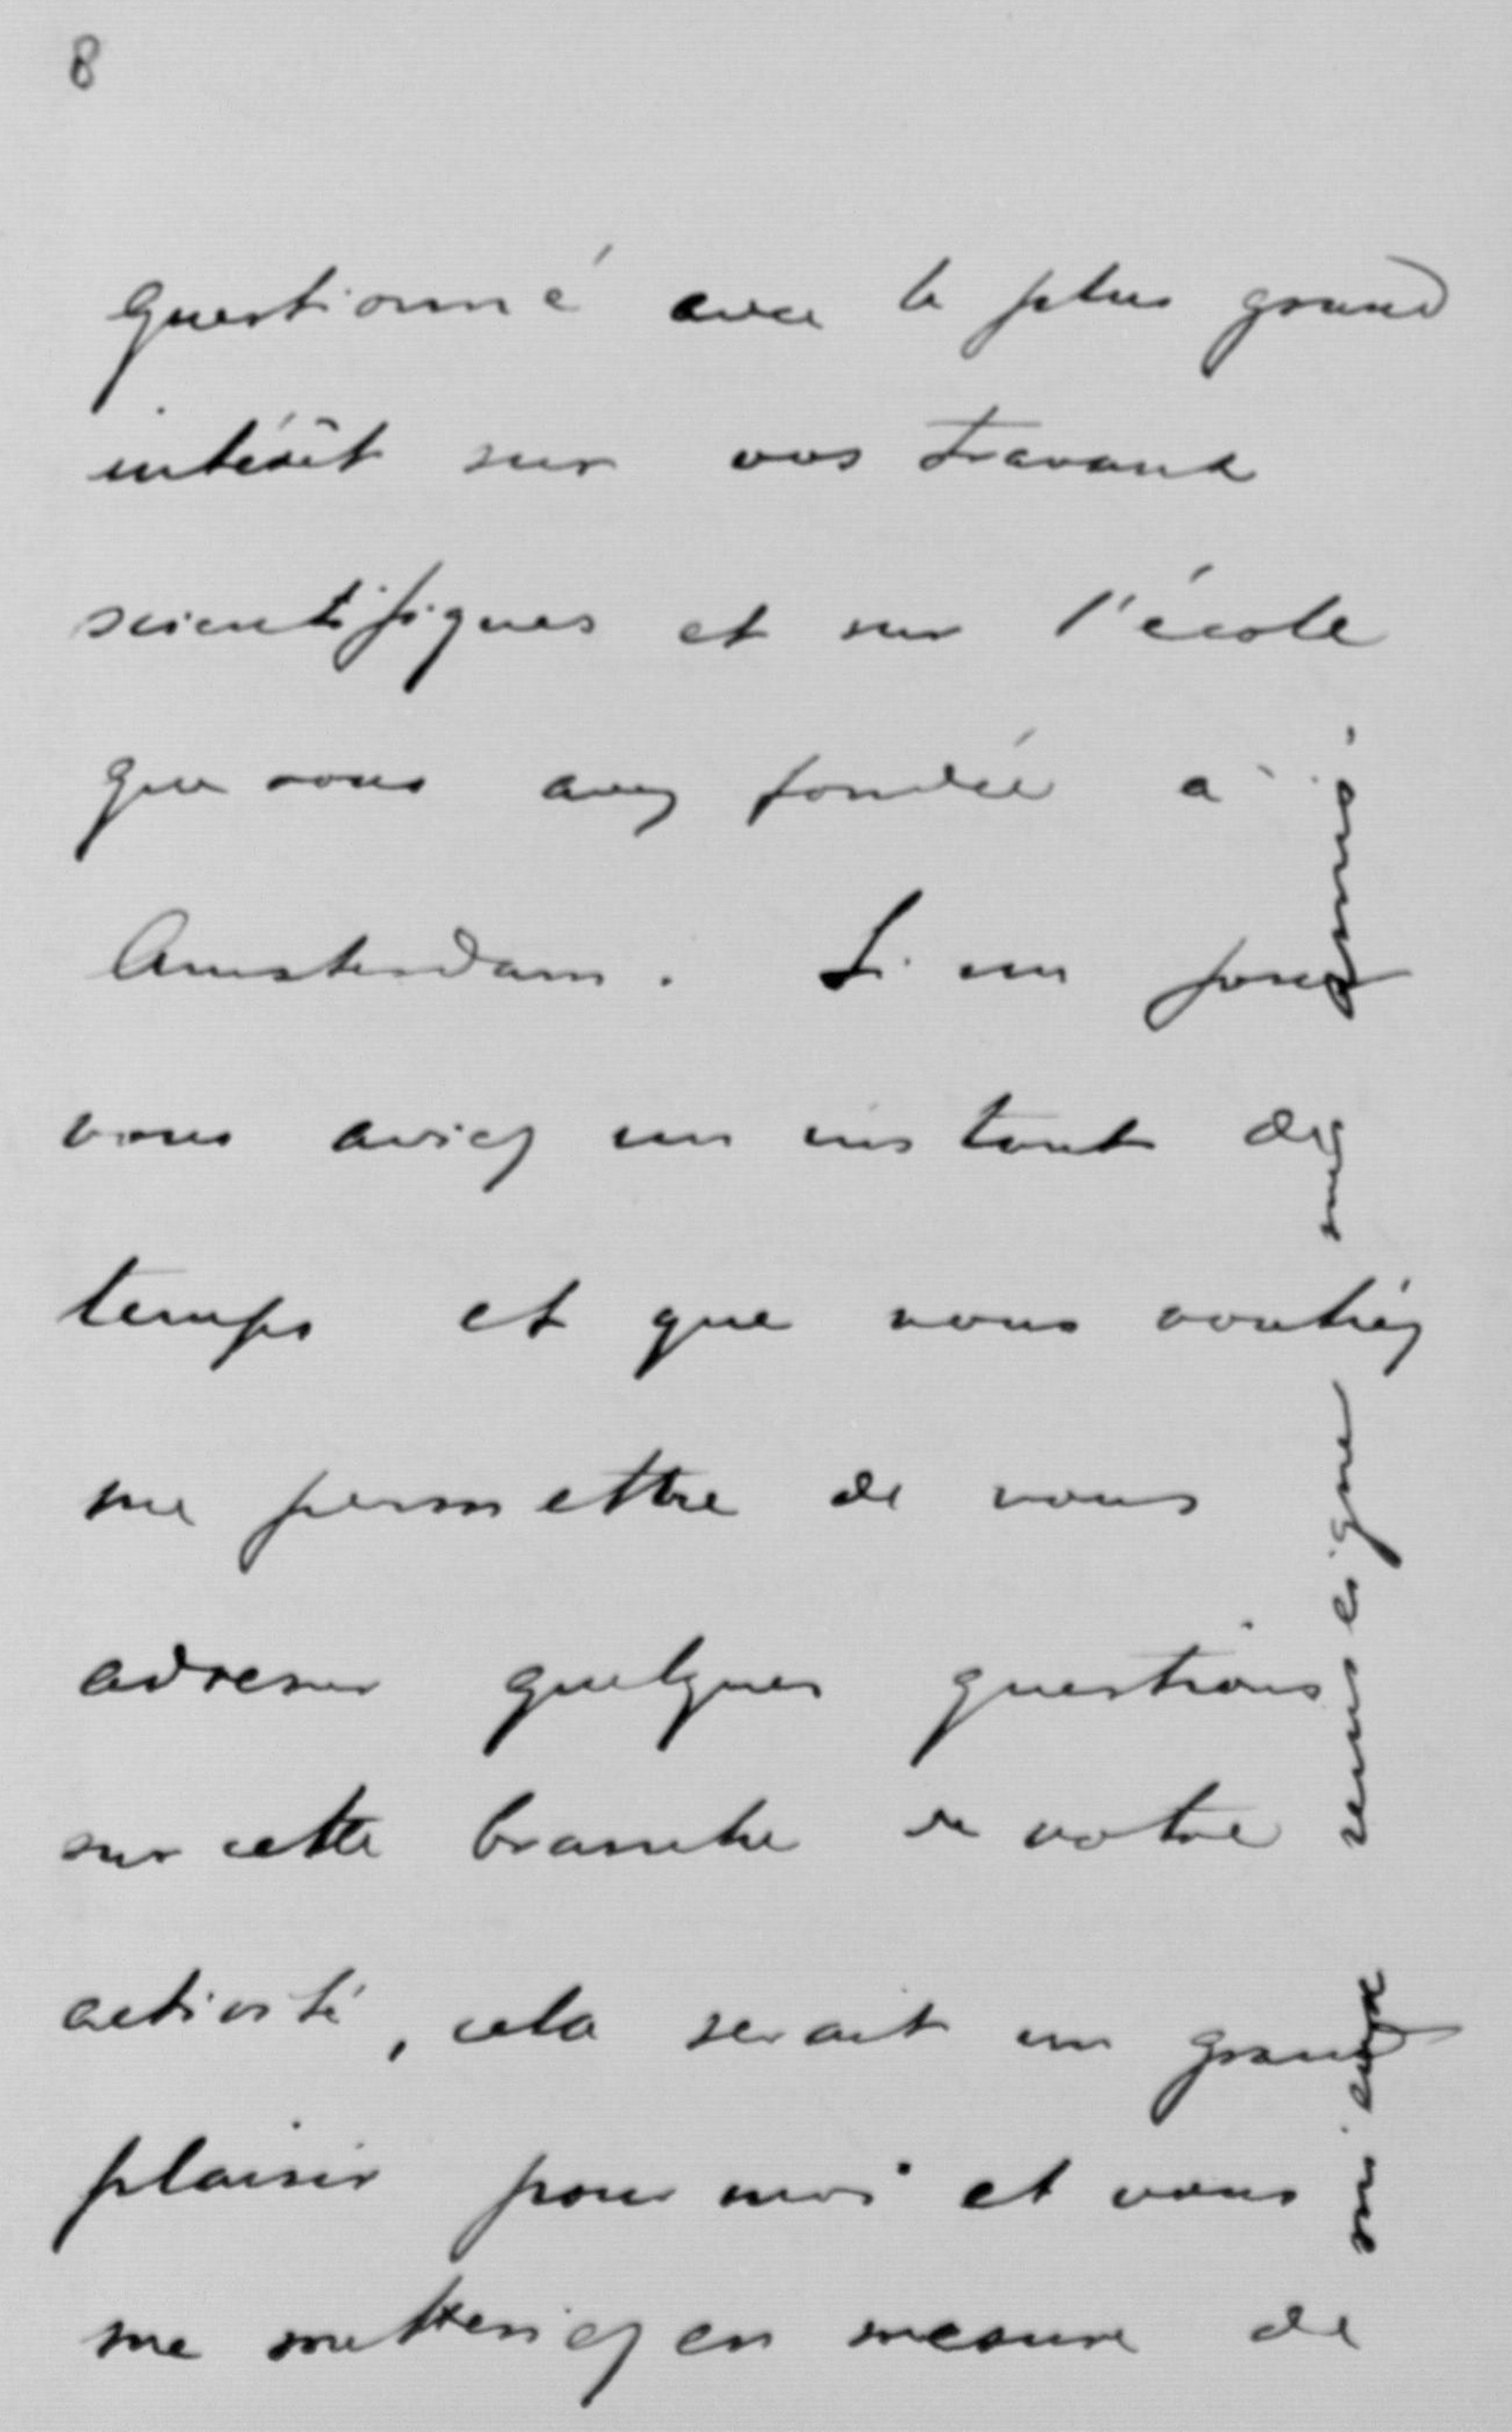 8
questionné avec le plus grand
intérêt sur vos travaux
scientifiques et sur l'école
que vous avez fondée à
Amsterdam. Si un jour
vous aviez un instant de
temps et que vous vouliez
me permettre de vous
adresser quelques questions
sur cette branche de votre
activité, cela serait un grand
plaisir pour moi et vous
me mettriez en mesure de
mieux renseigner mes amis.